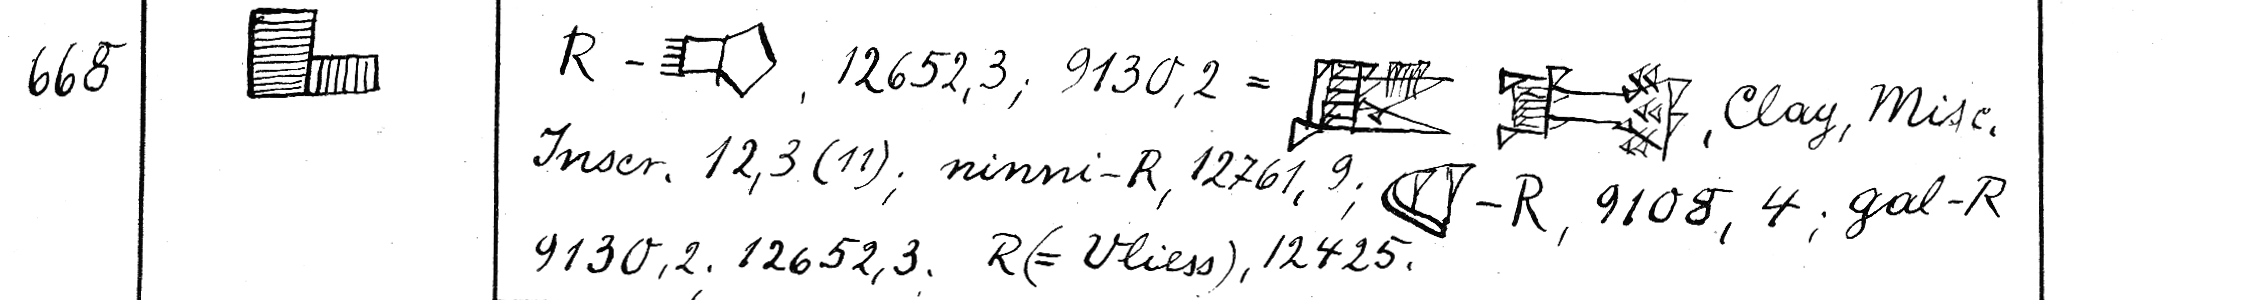 668 R - , 12652,3; 9130,2 = , Clay, Misc.
Inscr. 12,3 (11); ninni-R, 12761, 9; -R, 9108, 4; gal-R
9130,2. 12652,3. R (= Vliess), 12425.